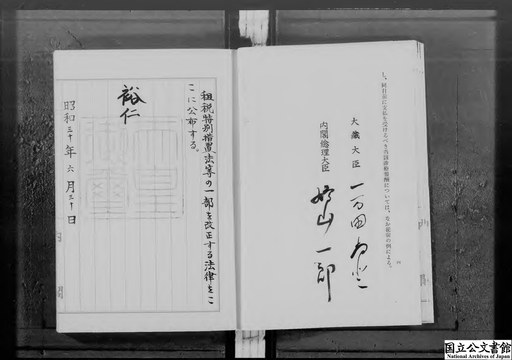 租税特別措置法等の一部を改正する法律をこ
こに公布する。
裕仁
昭和三十年六月三十日
大蔵大臣 一万田尚登
内閣総理大臣 鳩山一郎
国立公文書館
National Archives of Japan